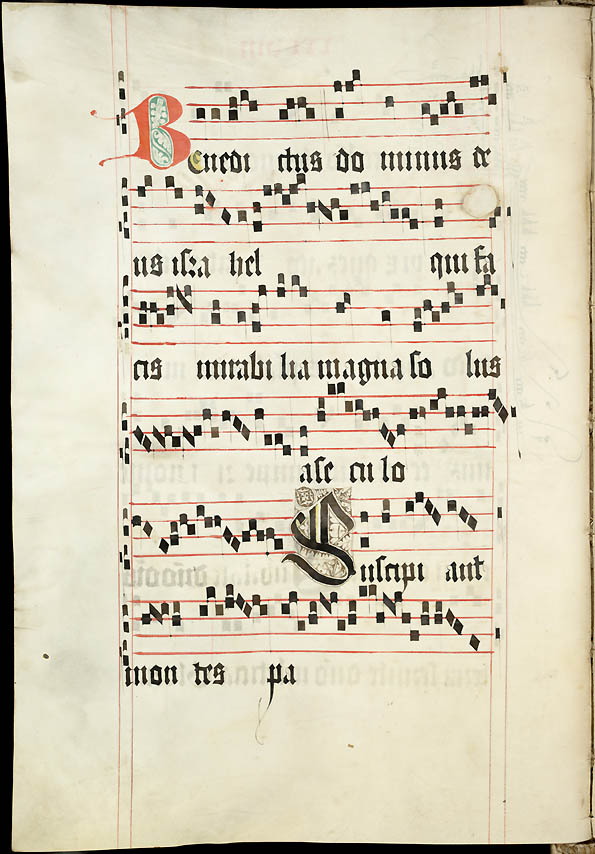 Benedi ctus do minus de
us isra hel qui fa
cis mirabi lia magna so lus
ase cu lo
Suscipi ant
mon tes pa